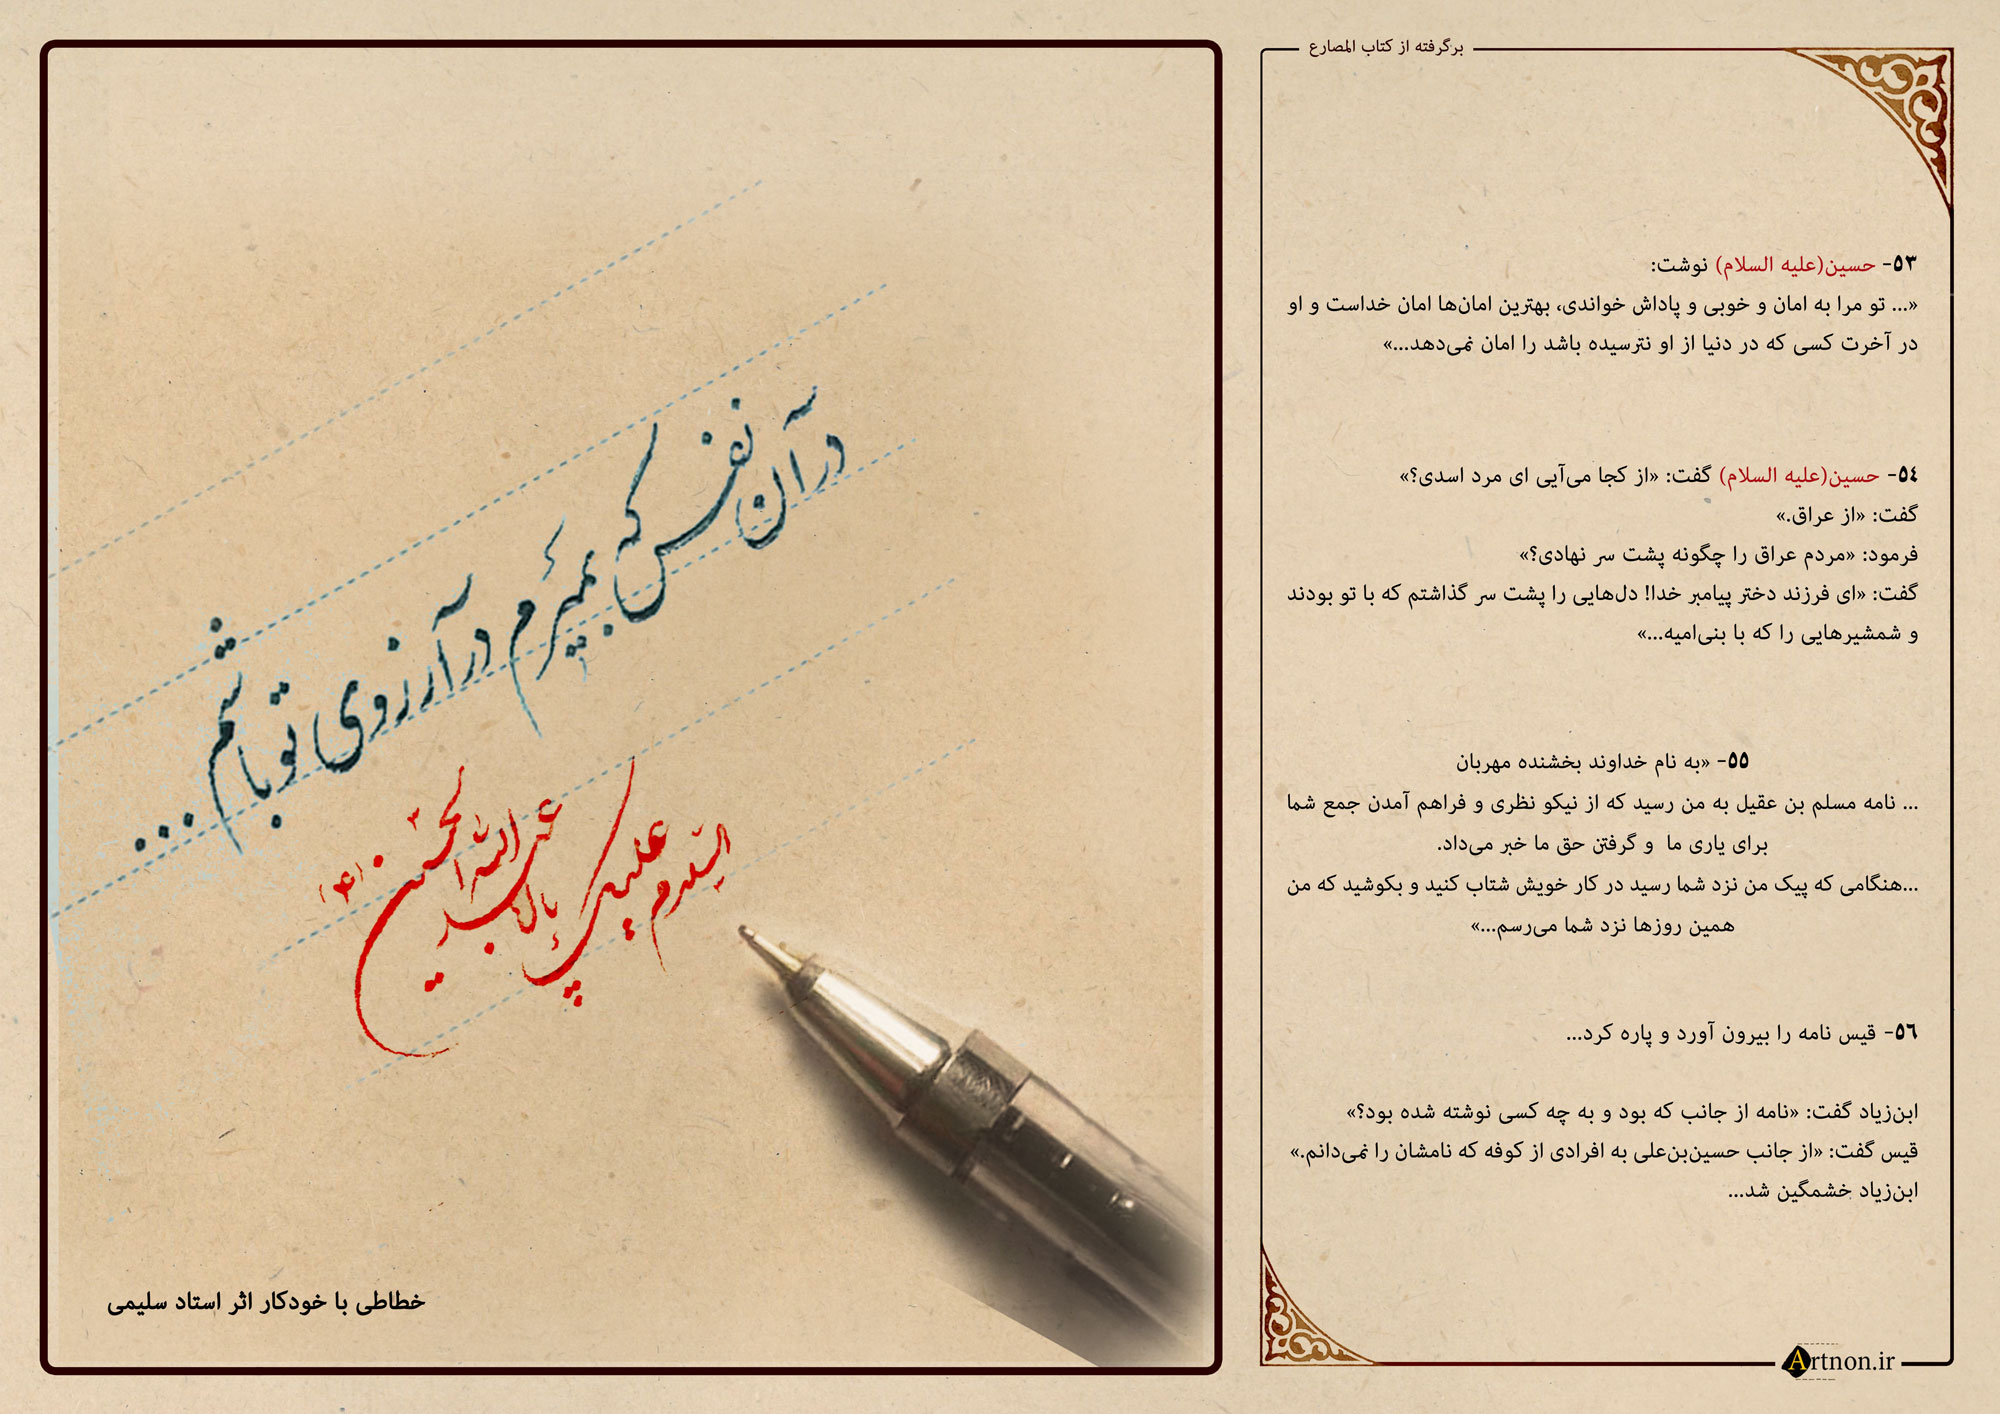 برگرفته از کتاب المصارع
۵۳- حسین(علیه السلام) نوشت:
«... تو مرا به امان و خوبی و پاداش خواندی، بهترین امان‌ها امان خداست و او
در آخرت کسی که در دنیا از او نترسیده باشد را امان نمی‌دهد...»
۵٤- حسین(علیه السلام) گفت: «از کجا می‌آیی ای مرد اسدی؟»
گفت: «از عراق.»
فرمود: «مردم عراق را چگونه پشت سر نهادی؟»
گفت: «ای فرزند دختر پیامبر خدا! دل‌هایی را پشت سر گذاشتم که با تو بودند
و شمشیرهایی را که با بنی‌امیه...»
۵۵- «به نام خداوند بخشنده مهربان
... نامه مسلم بن عقیل به من رسید که از نیکو نظری و فراهم آمدن جمع شما
برای یاری ما و گرفتن حق ما خبر می‌داد.
...هنگامی که پیک من نزد شما رسید در کار خویش شتاب کنید و بکوشید که من
همین روزها نزد شما می‌رسم...»
۵٦- قیس نامه را بیرون آورد و پاره کرد...
ابن‌زیاد گفت: «نامه از جانب که بود و به چه کسی نوشته شده بود؟»
قیس گفت: «از جانب حسین‌بن‌علی به افرادی از کوفه که نامشان را نمی‌دانم.»
ابن‌زیاد خشمگین شد...
Artnon.ir
در آن نفس که بمیرم در آرزوی تو باشم...
السلام علیک یا اباعبدالله الحسین (ع)
خطاطی با خودکار اثر استاد سلیمی